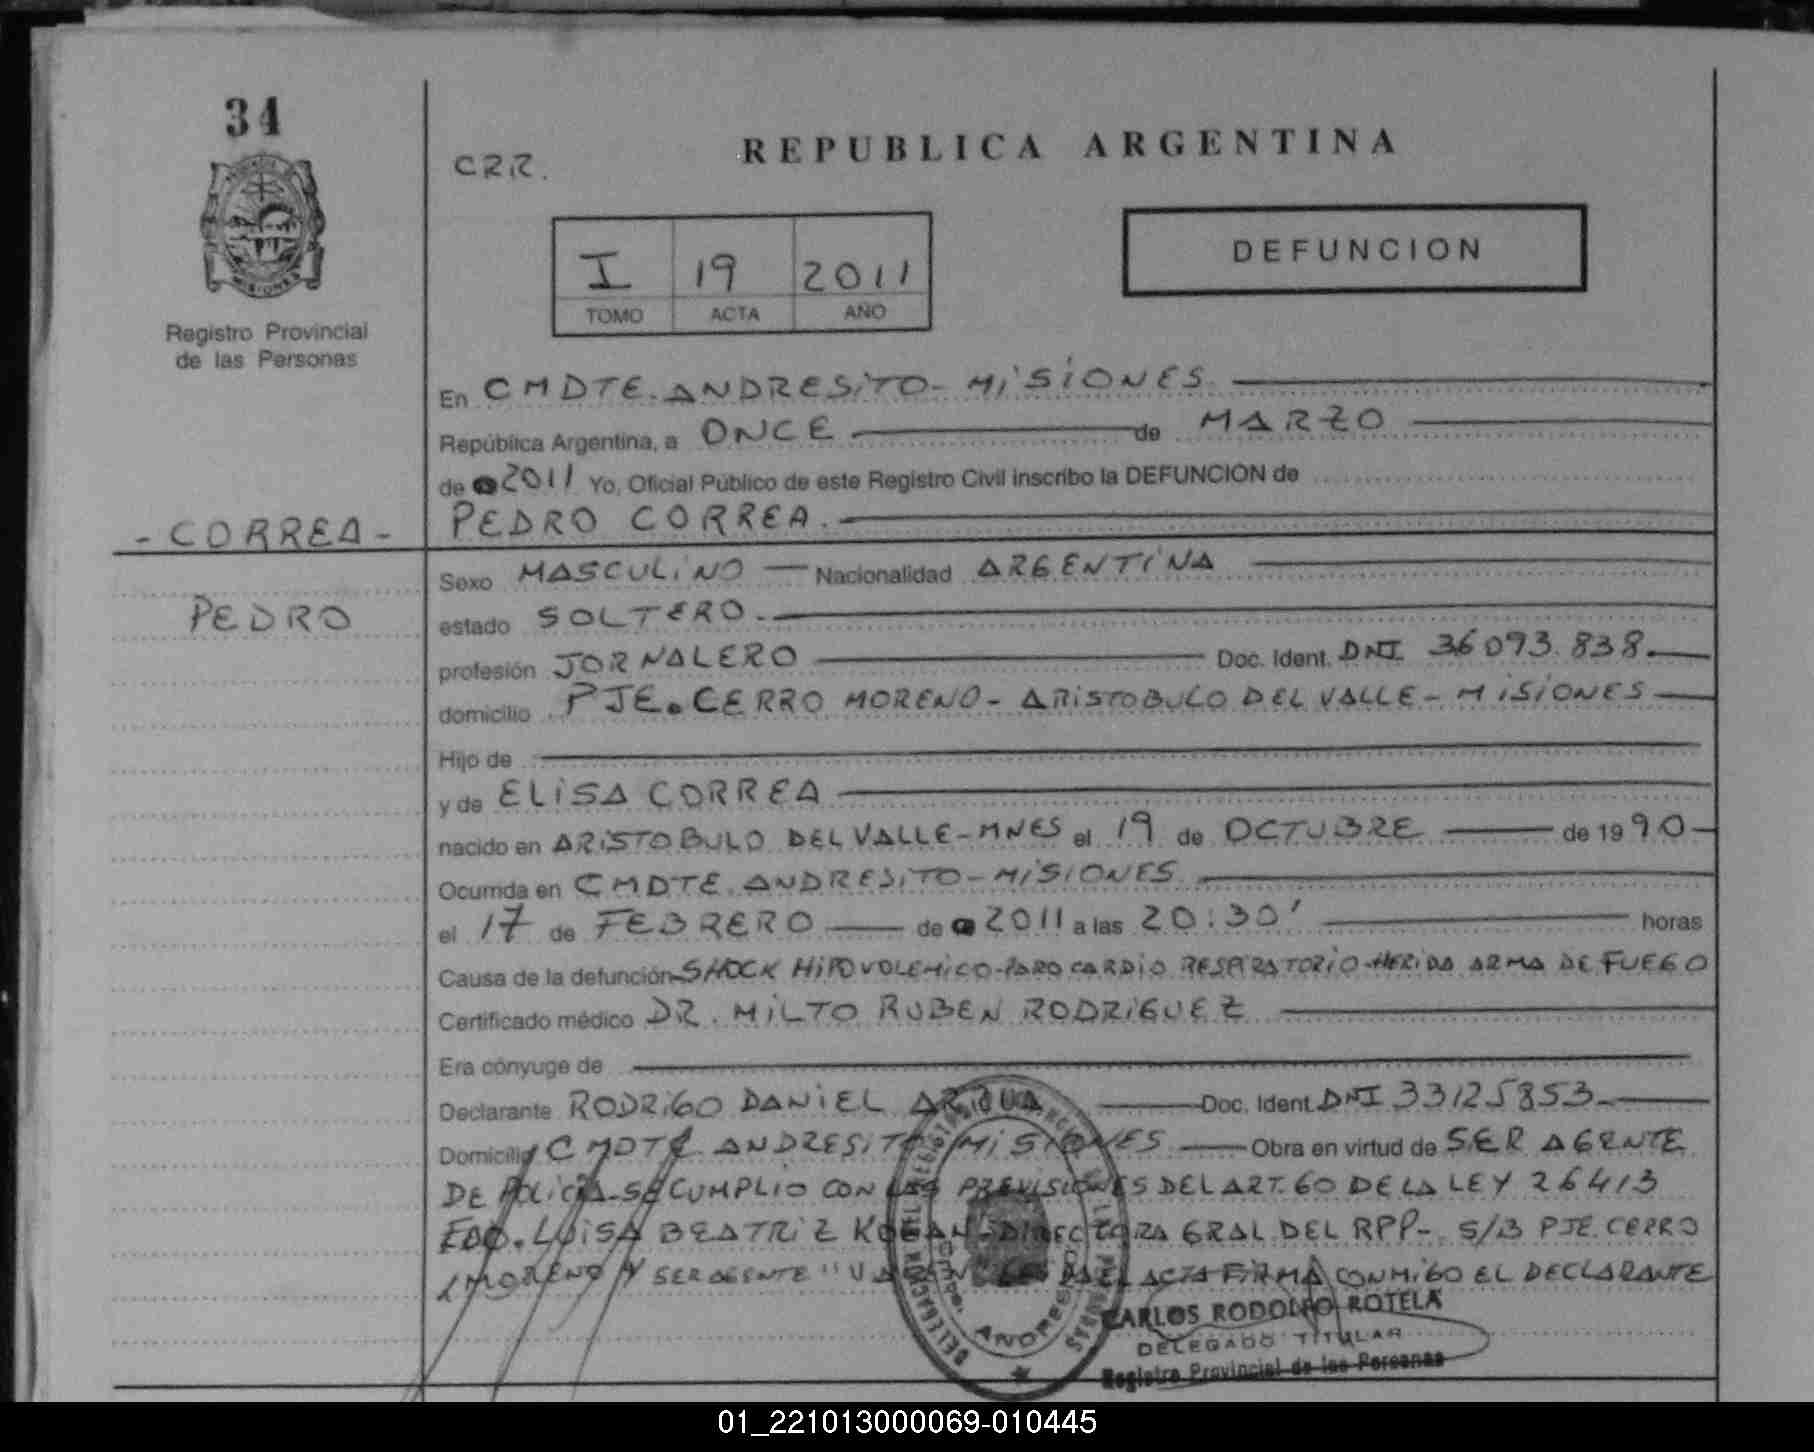 34
CRR.
REPUBLICA ARGENTINA
MISIONES
Registro Provincial
de las Personas
I 19 2011
TOMO ACTA AÑO
DEFUNCION
En CMDTE. ANDRESITO - MISIONES
República Argentina, a ONCE de MARZO
de 2011 Yo, Oficial Público de este Registro Civil inscribo la DEFUNCION de
- CORREA -
PEDRO CORREA.
PEDRO
Sexo MASCULINO Nacionalidad ARGENTINA
estado SOLTERO.
profesión JORNALERO Doc. Ident. DNI 36093.838.
domicilio PJE. CERRO MORENO - ARISTOBULO DEL VALLE - MISIONES
Hijo de
y de ELISA CORREA
nacido en ARISTOBULO DEL VALLE - MNES el 19 de OCTUBRE de 1990
Ocurrida en CMDTE. ANDRESITO - MISIONES
el 17 de FEBRERO de 2011 a las 20:30' horas
Causa de la defunción SHOCK HIPOVOLEMICO - PARO CARDIO RESPIRATORIO - HERIDA ARMA DE FUEGO
Certificado médico DR. MILTO RUBEN RODRIGUEZ
Era cónyuge de
Declarante RODRIGO DANIEL Doc. Ident. DNI 33125853
Domicilio CMDTE ANDRESITO MISIONES Obra en virtud de SER AGENTE
DE POLICIA - SE CUMPLIO CON LAS PREVISIONES DEL ART. 60 DE LA LEY 26413
FDO. LUISA BEATRIZ - DIRECTORA GRAL DEL RPP - S/B PJE. CERRO
MORENO Y SER AGENTE "VALEN" ACTA FIRMA CONMIGO EL DECLARANTE
CARLOS RODOLFO ROTELA
DELEGADO TITULAR
Registro Provincial de las Personas
01_221013000069-010445